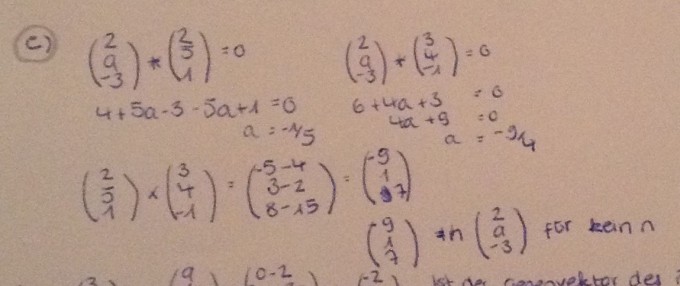 c) (2 a -3) * (2 5 1) = 0 (2 a -3) * (3 4 -1) = 0
4+5a-3 - 5a+1 = 0 6+4a+3 = 0
a = -1/5 4a+9 = 0
a = -9/4
(2 5 1) × (3 4 -1) = (-5-4 3-2 8-15) = (-9 1 7)
(9 1 7) = n (2 a -3) für kein n
(0-2 (-2 ist der des